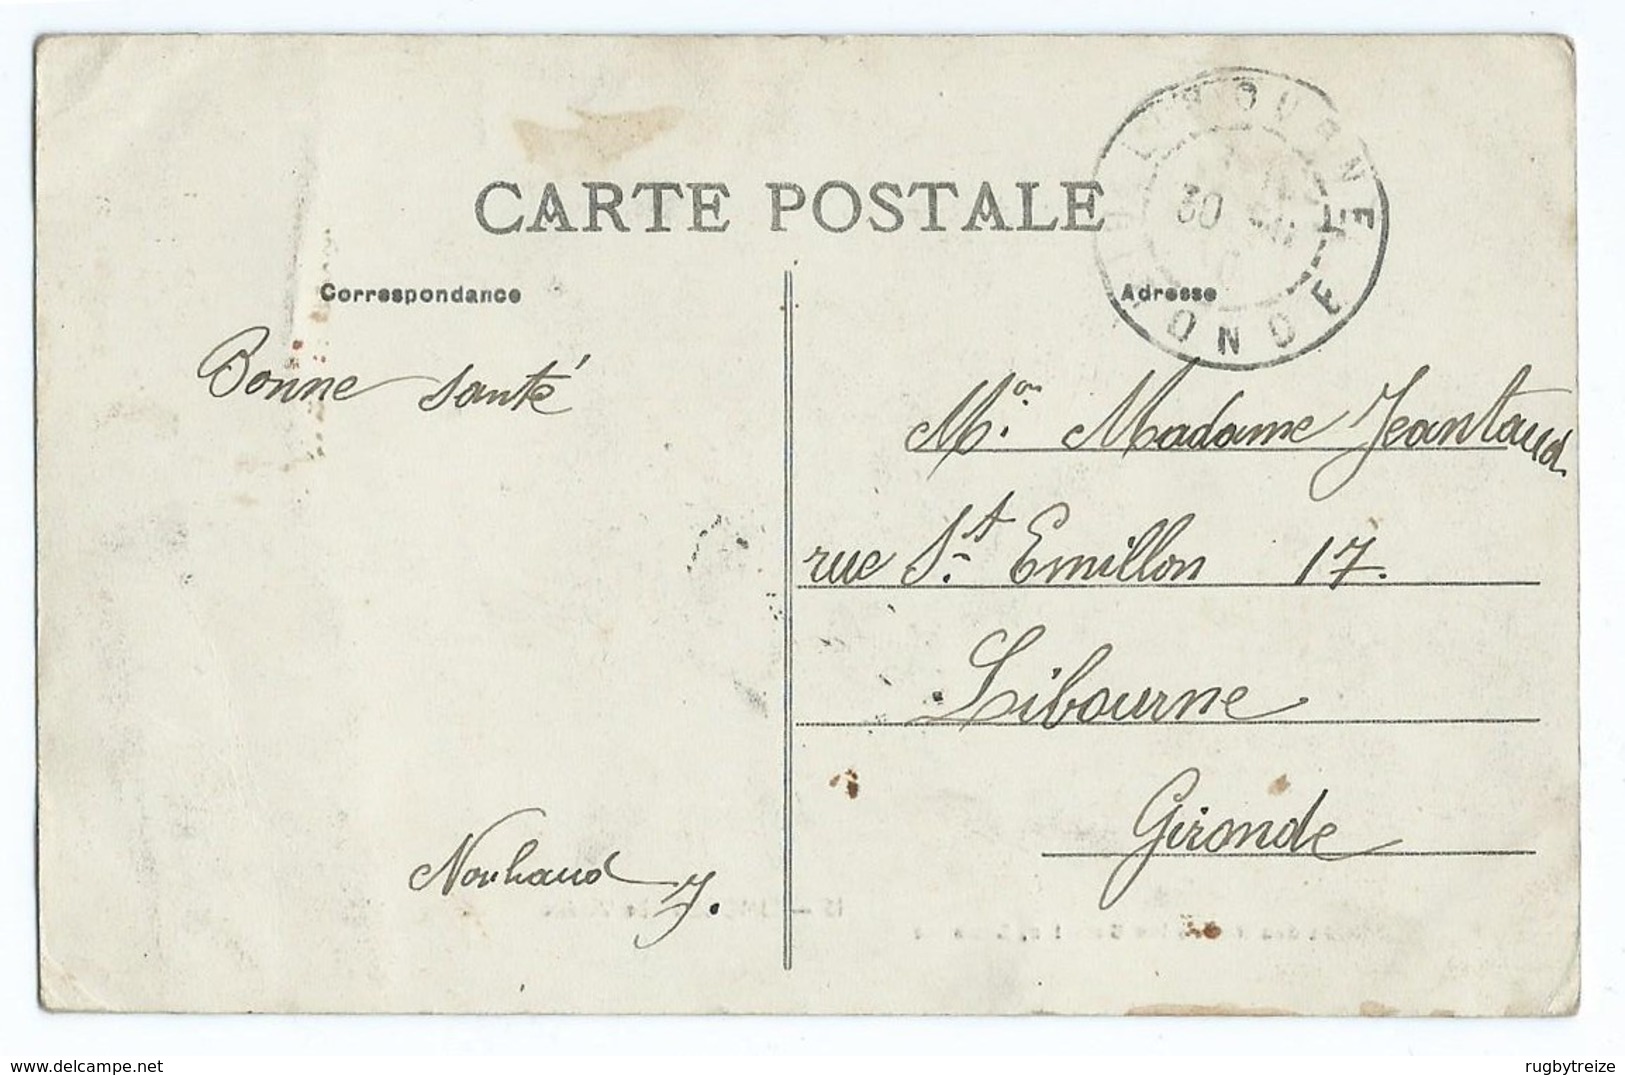 CARTE POSTALE
LIBOURNE
30
GIRONDE
Correspondance
Adresse
Bonne santé
Mon. Madame Jeantaud
rue St. Emillon 17.
Libourne
Gironde
J.
www.delcampe.net
rugbytreize